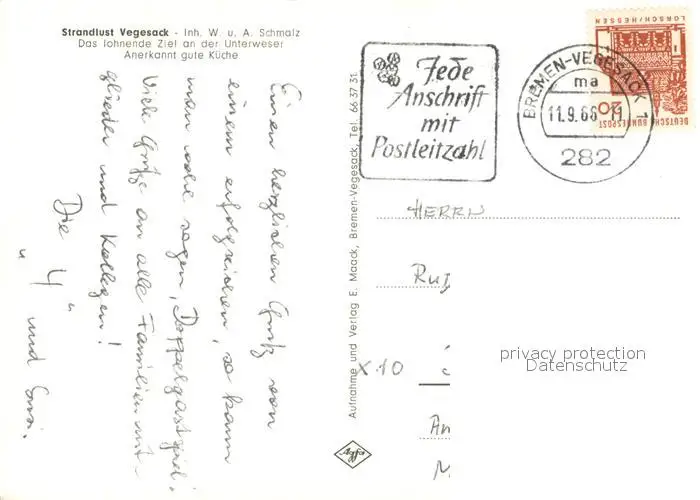 Strandlust Vegesack - Inh. W. u. A. Schmalz
Das lohnende Ziel an der Unterweser
Anerkannt gute Küche
Einen herzlichen Gruß von
einem erfolgreichen, so kann
man wohl sagen, Doppelgastspiel.
Viele Grüße an alle Familienmit-
glieder und Kollegen!
Die "4" und
Aufnahme und Verlag E. Maack, Bremen-Vegesack, Tel. 66 37 31
Jede
Anschrift
mit
Postleitzahl
BREMEN-VEGESACK 1
ma
11.9.66
282
DEUTSCHE BUNDESPOST
20
LORSCH/HESSEN
HERRN
X10
An
M
Agfa
privacy protection
Datenschutz